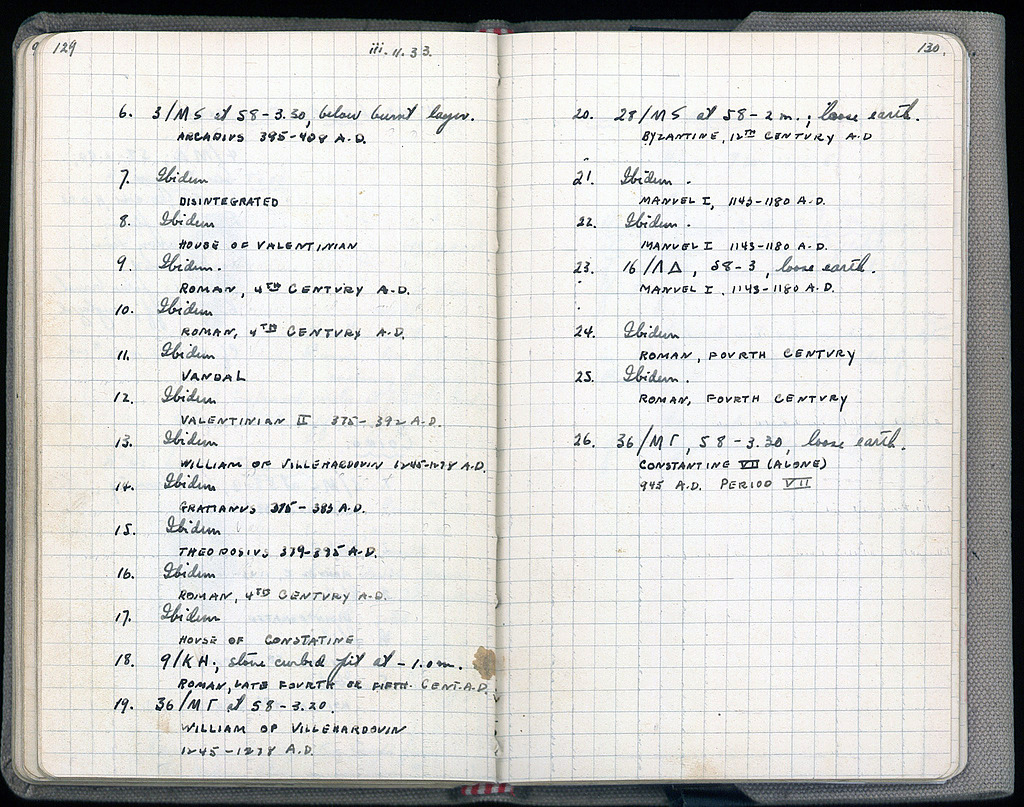 129
iii.11.33.
6. 3/MS at 58-3.30, below burnt layer.
ARCADIUS 395-408 A.D.
7. Ibidem
DISINTEGRATED
8. Ibidem
HOUSE OF VALENTINIAN
9. Ibidem.
ROMAN, 4TH CENTURY A.D.
10. Ibidem
ROMAN, 4TH CENTURY A.D.
11. Ibidem
VANDAL
12. Ibidem
VALENTINIAN II 375-392 A.D.
13. Ibidem
WILLIAM OF VILLEHARDOUIN 1245-1278 A.D.
14. Ibidem
GRATIANUS 375-383 A.D.
15. Ibidem
THEODOSIUS 379-395 A.D.
16. Ibidem
ROMAN, 4TH CENTURY A.D.
17. Ibidem
HOUSE OF CONSTATINE
18. 9/KH; stone curbed pit at -1.0m.
ROMAN, LATE FOURTH OR FIFTH CENT. A.D.
19. 36/MΓ at 58-3.20.
WILLIAM OF VILLEHARDOUIN
1245-1278 A.D.
130.
20. 28/MS at 58-2m.; loose earth.
BYZANTINE, 12TH CENTURY A.D
21. Ibidem.
MANUEL I, 1143-1180 A.D.
22. Ibidem.
MANUEL I 1143-1180 A.D.
23. 16/ΛΔ, 58-3, loose earth.
MANUEL I, 1143-1180 A.D.
24. Ibidem
ROMAN, FOURTH CENTURY
25. Ibidem.
ROMAN, FOURTH CENTURY
26. 36/MΓ, 58-3.30, loose earth.
CONSTANTINE VII (ALONE)
945 A.D. PERIOD VII